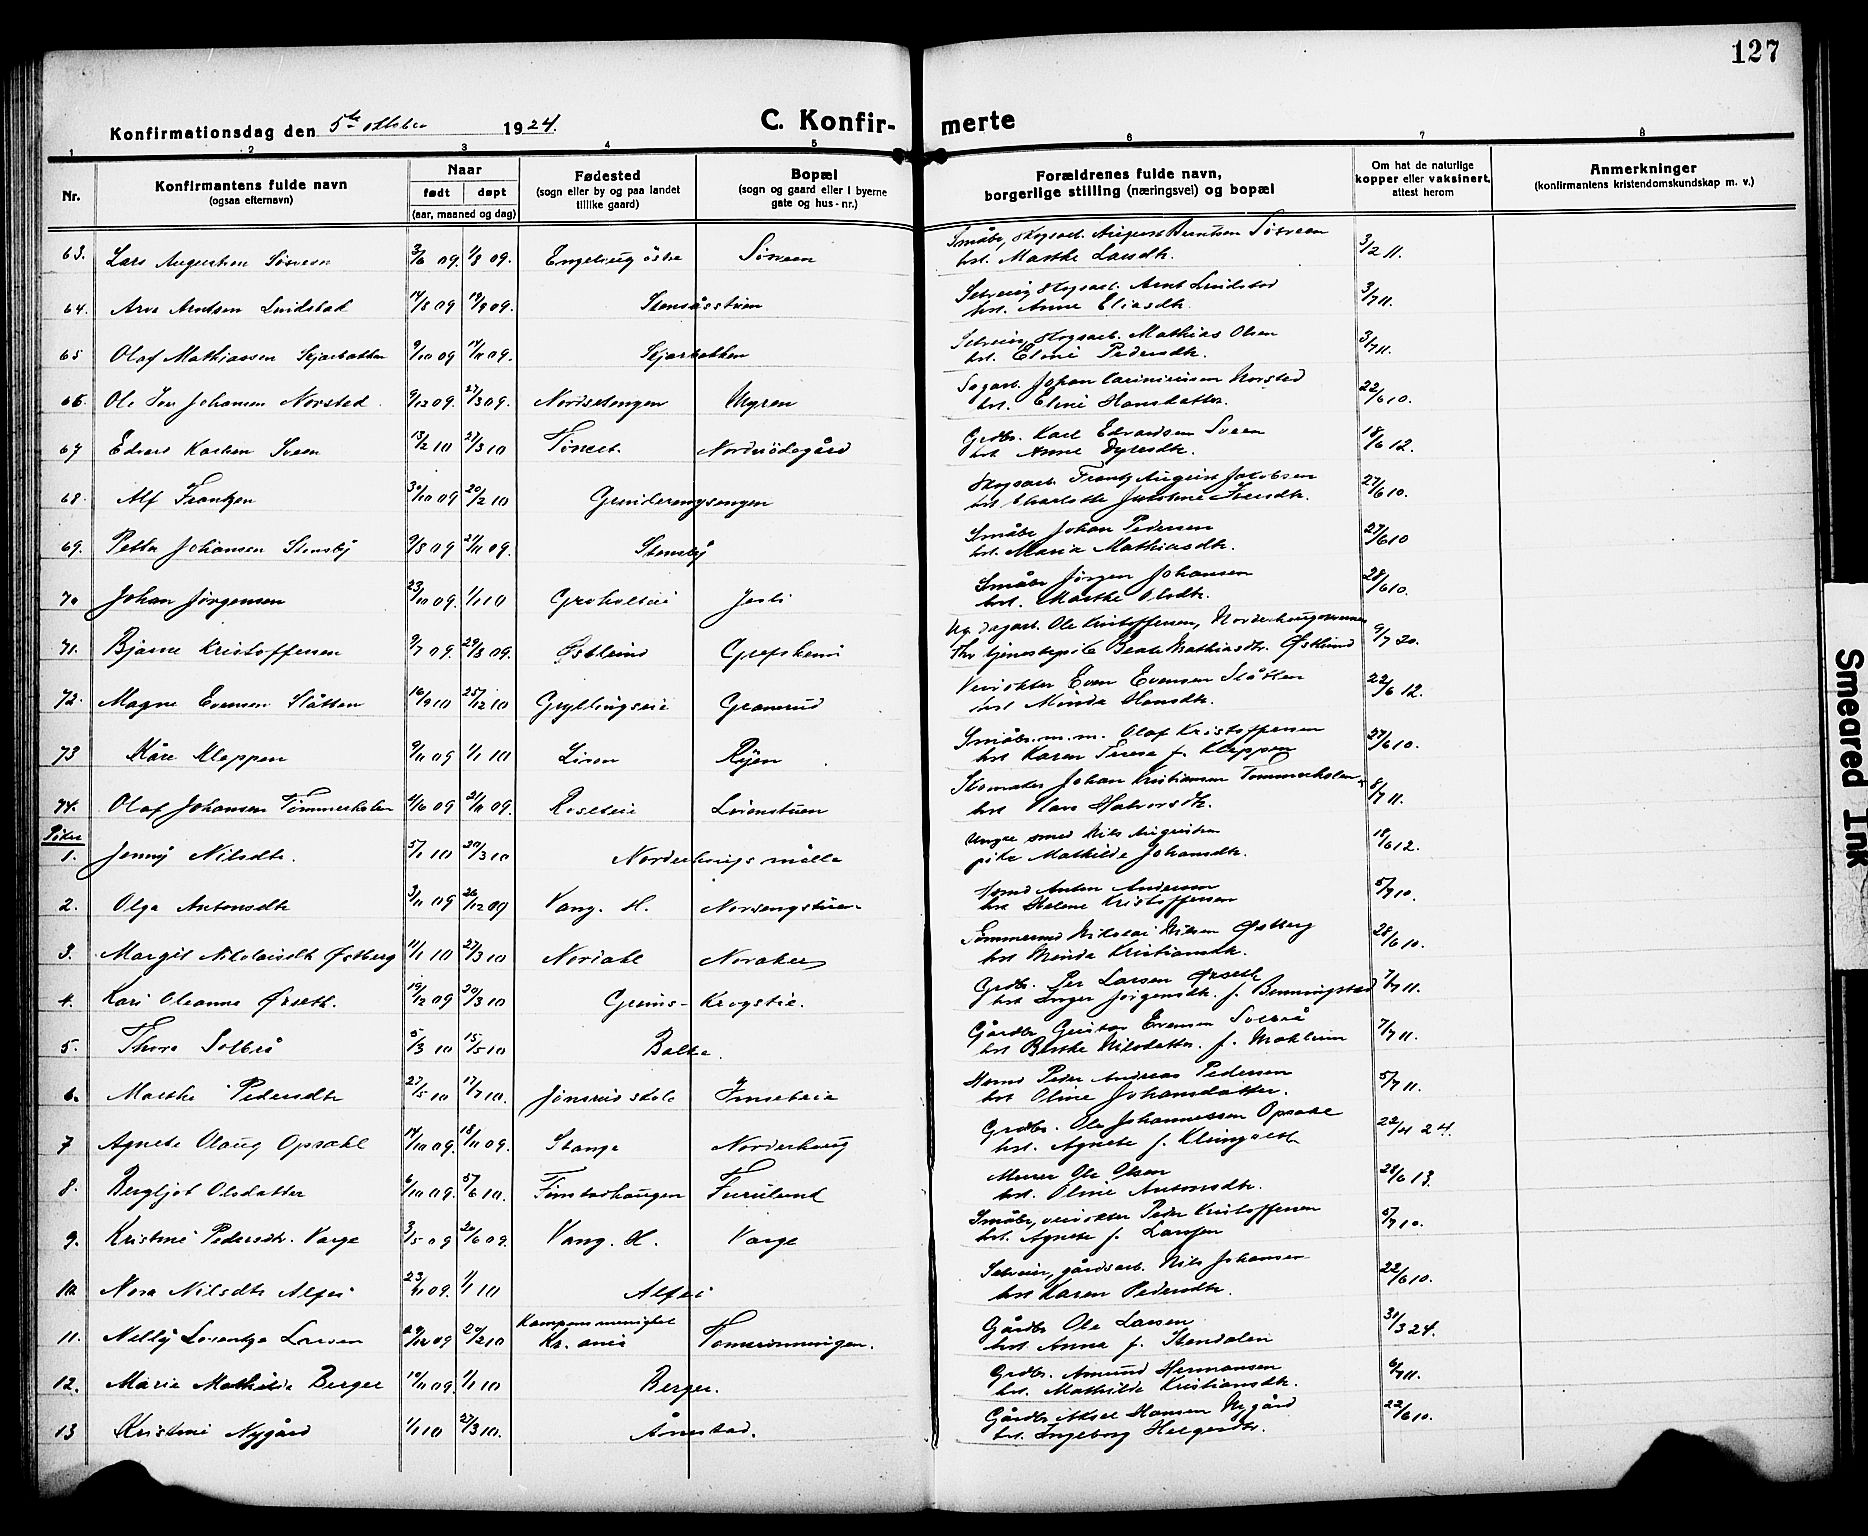 127
Konfirmationsdag den 5te oktober 1924.
C. Konfir- merte
1 2 3 4 5 6 7 8
Nr.
Konfirmantens fulde navn
(ogsaa efternavn)
Naar
født døpt
(aar, maaned og dag)
Fødested
(sogn eller by og paa landet
tillike gaard)
Bopæl
(sogn og gaard eller i byerne
gate og hus-nr.)
Forældrenes fulde navn,
borgerlige stilling (næringsvei) og bopæl
Om hat de naturlige
kopper eller vaksinert,
attest herom
Anmerkninger
(konfirmantens kristendomskundskap m. v.)
63. Lars Augustsen Sösveen 3/6 09. 1/8 09. Engelaug östre Sösveen
Småbr, skogsarb. August Berntsen Sösveen 3/2 11.
hst. Marthe Larsdtr.
64. Arve Arntsen Lindstad 14/8 09 19/9 09. Stensåsstuen
Selveier, skogsarb. Arnt Lindstad 3/7 11.
hst. Anne Eliasdtr.
65 Olaf Mathiassen Skjærbakken 9/10 09 14/11 09. Skjærbakken
Selveier, skogsarb. Mathias Olsen 3/7 11.
hst. Eline Pedersdtr.
66. Ole Johansen Norsted. 9/12 09. 27/3 09. Nordstengen Myren
Sagarb. Johan Norsted 22/6 10.
hst. Eline Hansdatter.
67 Edvard Karlsen Sveen 13/2 10 27/3 10 Tönset. Nordrödegård
Grdbr. Karl Edvardsen Sveen 18/6 12.
hst Anne
68. Alf Frantzen 30/10 09 20/2 10 Grinderengsengen
Skogsarb. Frantz August Jakobsen 27/6 10.
hst Charlotte
69. Petter Johansen Stensby 9/8 09 21/11 09. Stensby
Småbr Johan Pedersen 27/6 10
hst. Maria Mathiasdtr.
70 Johan Jørgensen 23/10 09. 1/1 10 Groholteie Jesli
Småbr Jørgen Johansen 28/6 10.
hst. Marthe Olsdtr.
71. Bjarne Kristoffersen 9/7 09. 29/8 09. Østlund Grefsheim
Ug. dagarb. Ole Kristoffersen, 9/7 20.
tjenestepike Beate Mathiasdtr. Østlund
72. Magne Evensen Slåtten 16/9 10 25/12 10 Gryllingseie Granerud
Even Evensen Slåtten 22/6 12.
hst Minda Hansdtr.
73 Kåre Kleppen 9/11 09 1/1 10 Rÿen
Småbr. m.m. Olaf Kristoffersen 27/6 10.
hst Karen f. Kleppen
74. Olaf Johansen Tömmerholen 4/10 09 21/11 09. Roseteie
Skomaker Johan Kristiansen Tommerholen 8/7 11.
hst Halvorsdtr.
Piker
1. Jenny Nilsdtr. 5/1 10 20/3 10 Norderhougs mölle
Ungkr smed Nils Augustsen 18/6 12.
pike Mathilde Johansdtr.
2. Olga Antonsdtr 3/11 09 26/12 09 Vang. H.
Anton Andersen 5/7 10.
hst Helene Kristoffersen
3. Margit Nikolaisdtr Østberg 11/1 10 27/3 10 Noraker
Tömmermd Nikolai Nilsen Østberg 28/6 10.
hst Minda Kristiansdtr.
4. Kari Oleanne Ørseth. 19/12 09 20/3 10 Greins- Krogstie.
Grdbr. Per Larsen Ørseth 7/7 11.
hst Inger Jörgensdtr. f. Benningstad
5. Thora Solbrå 5/3 10 15/5 10 Balke.
Gårdbr Gustav Evensen Solbrå 7/7 11.
hst Berthe Nilsdatter. f. Mohleim
6. Marthe Pedersdtr 27/5 10 17/7 10. Imsetreie
Husmd Peder Andreas Pedersen 5/7 11.
hst Oline Johansdatter.
7 Agnete Olaug Opsahl 14/10 09. 18/11 09. Stange Norderhoug
Grdbr. Ole Johannessen Opsahl 22/4 24.
hst. Agnete f.
8. Bergljot Olsdatter 6/10 09. 5/6 10. Finstadhaugen Furulund
Murer Ole Olsen 28/6 13.
hst. Oline Antonsdtr.
9. Kristine Pedersdtr. Varge 3/5 09 20/6 09. Vang. H. Varge
Småbr, Peder Kristoffersen 5/7 10.
hst. Agnete f. Larssen
10. Nora Nilsdtr Alfei 23/11 09. 1/1 10 Alfei
Selveier, gårdsarb. Nils Johansen 22/6 10.
hst Karen Pedersdtr.
11. Nelly Lorentze Larsen 29/12 09 20/2 10 Kampens menighet
Kr. ania Tomerönningen.
Gårdbr Ole Larsen 31/3 24.
hst Anna f. Stendalen
12. Marie Mathilde Berger 19/11 09. 1/1 10 Berger.
Grdbr. Amund Hermansen 6/7 11.
hst. Mathilde Kristiansdtr.
13 Kristine Nygård 1/1 10 27/3 10. Ånestad.
Gårdbr Aksel Hansen Nygård 22/6 10.
hst. Ingeborg Helgesdtr.
Smeared Ink